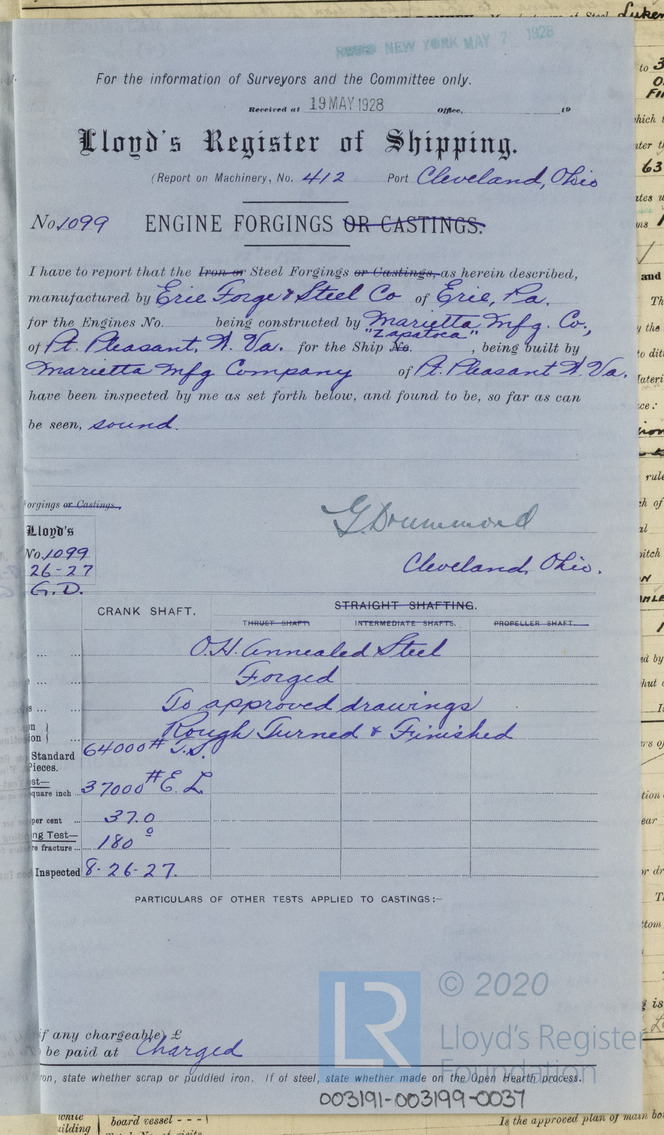 NEW YORK MAY 7 1928
For the information of Surveyors and the Committee only.
Received at 19 MAY 1928 Office, 19
Lloyd's Register of Shipping.
(Report on Machinery, No. 412 Port Cleveland, Ohio
No. 1099 ENGINE FORGINGS OR CASTINGS.
I have to report that the Iron or Steel Forgings or Castings, as herein described,
manufactured by Erie Forge & Steel Co of Erie, Pa.
for the Engines No. being constructed by Marietta Mfg. Co.,
of Pt. Pleasant, W. Va. for the Ship No. , being built by
Marietta Mfg Company of Pt. Pleasant W. Va.
have been inspected by me as set forth below, and found to be, so far as can
be seen, sound.
orgings or Castings.,
G. Drummond
Lloyd's
No. 1099
Cleveland, Ohio.
26-27
G.D.
CRANK SHAFT. STRAIGHT SHAFTING.
THRUST SHAFT. INTERMEDIATE SHAFTS. PROPELLER SHAFT.
O.H. Annealed Steel
Forged
To approved drawings
Rough Turned & Finished
Standard 64000# T.S.
Pieces.
square inch ... 37000# E.L.
per cent ... 37.0
ng Test—
re fracture ... 180°
Inspected 8-26-27.
PARTICULARS OF OTHER TESTS APPLIED TO CASTINGS:—
if any chargeable) £
be paid at Charged
ron, state whether scrap or puddled iron. If of steel, state whether made on the Open Hearth process.
LR © 2020
Lloyd's Register
Foundation
003191-003199-0037
board vessel - - -
Is the approved plan of main bo